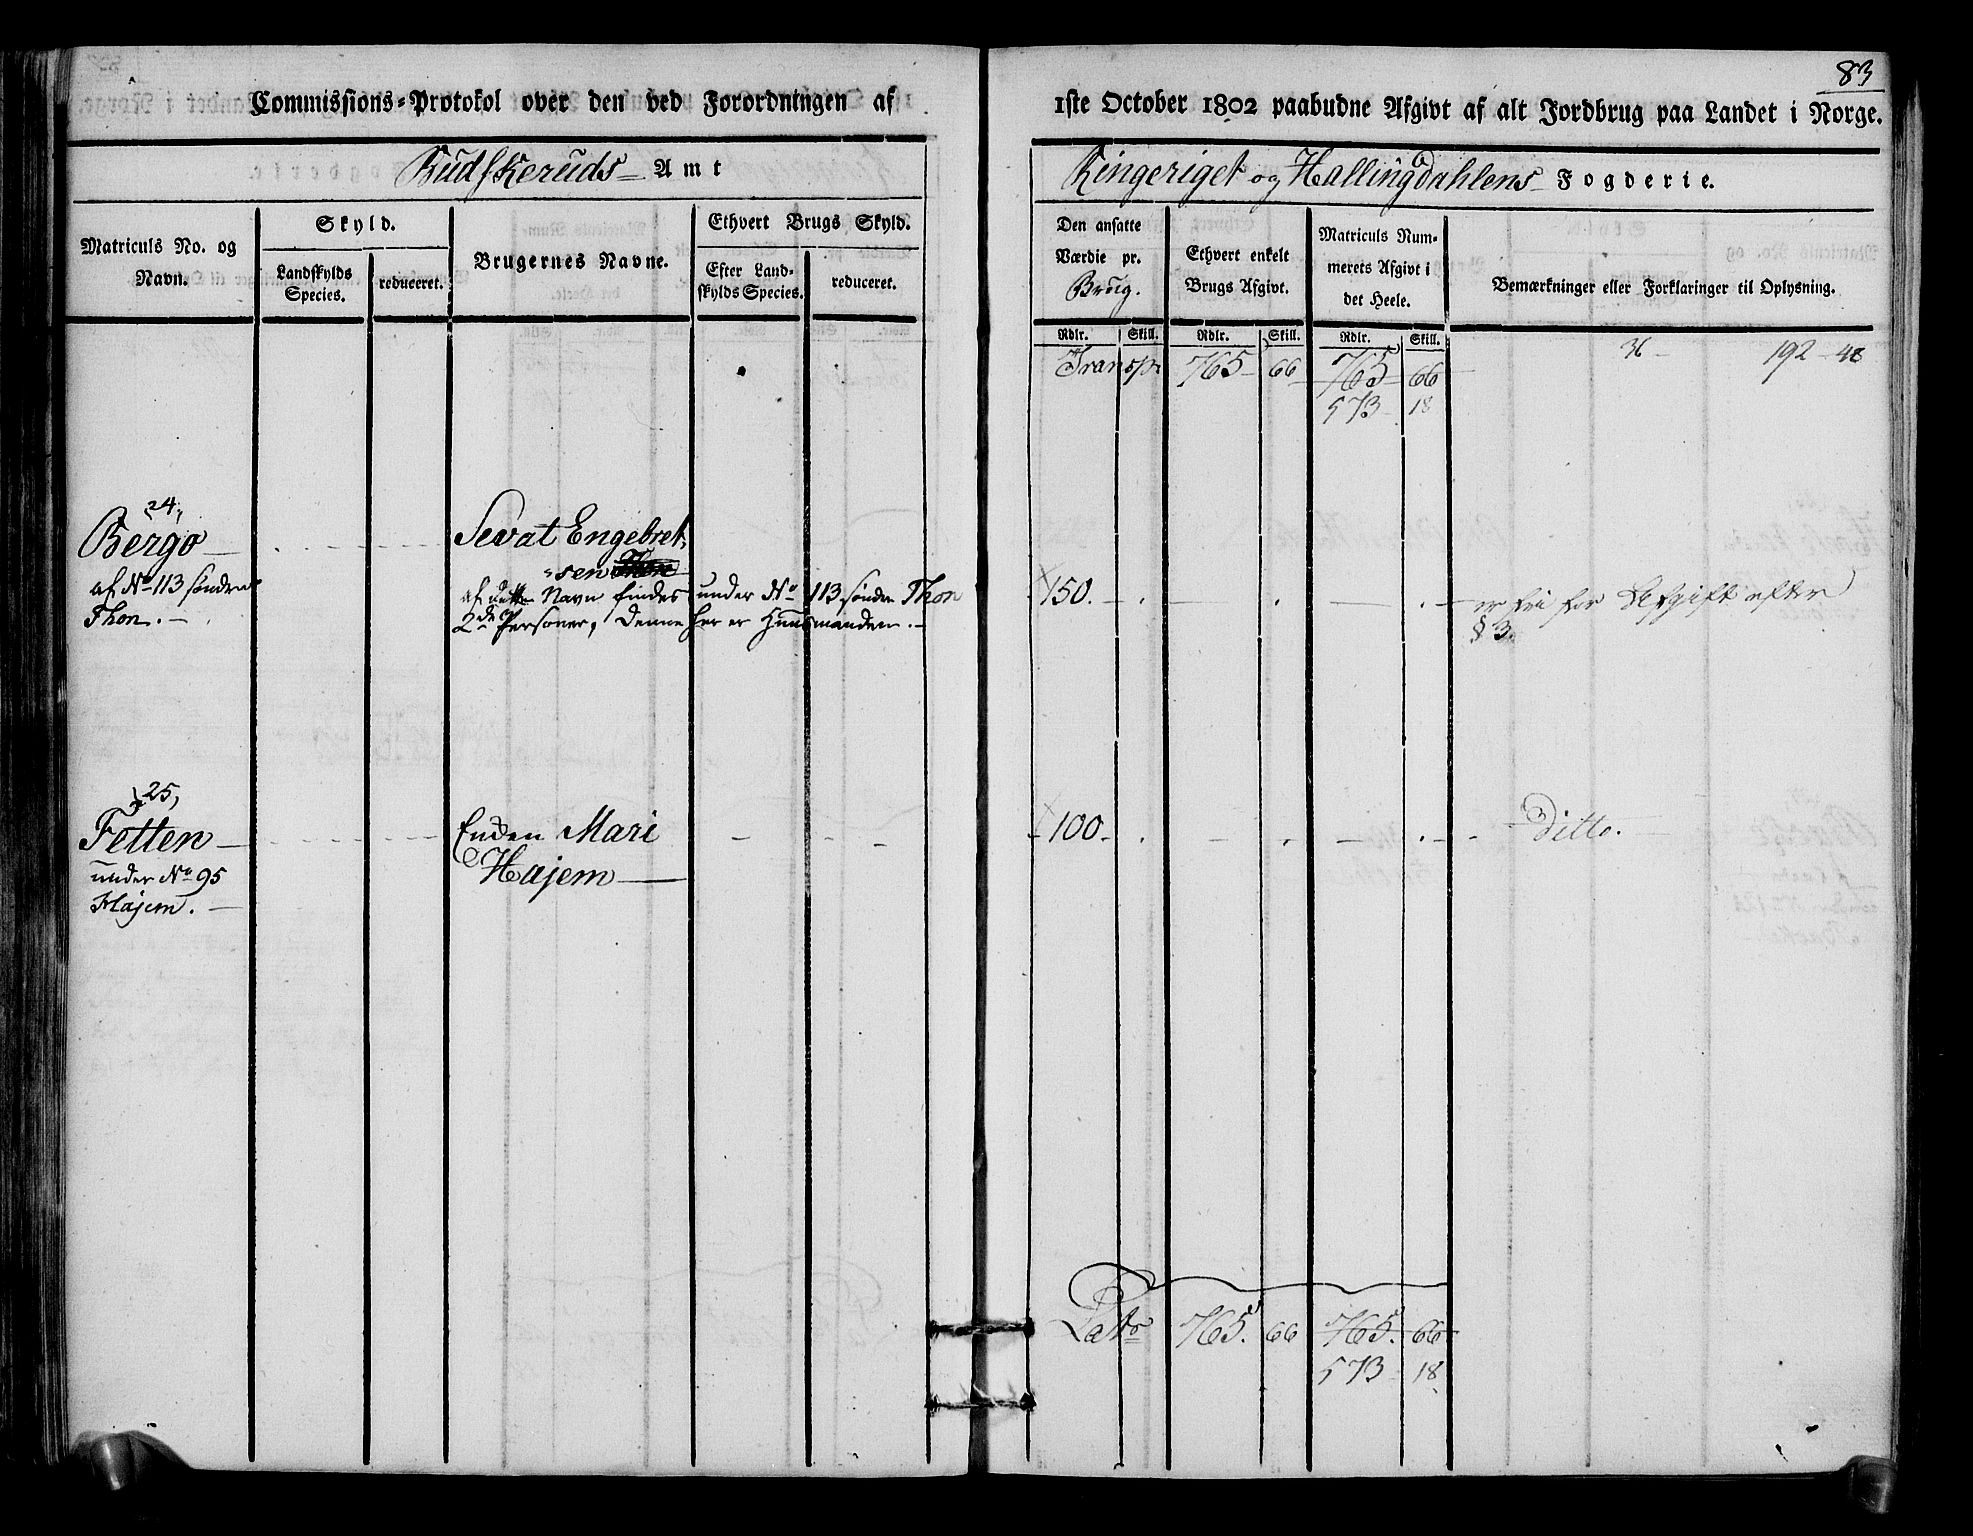 83
Commissions-Protokol over den ved Forordningen af 1ste October 1802 paabudne Afgivt af alt Jordbrug paa Landet i Norge.
Budskeruds Amt
Ringeriget og Hallingdahlens Fogderie.
Matriculs No. og Navn.
Skyld.
Landskylds Species.
reduceret.
Brugernes Navne.
Ethvert Brugs Skyld.
Efter Landskylds Species.
reduceret.
Den ansatte Værdie pr. Brug.
Ethvert enkelt Brugs Afgivt.
Matriculs Nummerets Afgivt i det Heele.
Bemærkninger eller Forklaringer til Oplysning.
Rdlr. Skill. Rdlr. Skill. Rdlr. Skill.
Transp. 765 66 765 66 36 192 - 48
573 18
24,
Bergo
af No 113 søndre
Thon.
Sevat Engebret-
sen
af dette Navn findes under No 113 søndre Thon
2de Personer, denne her er Huusmanden.
150.
er fri for Afgift efter
§ 3.
25,
Fetten
under No 95
Hajem.
Enken Mari
Hajem
100
Ditto.
Lats 765. 66 765. 66
573 18